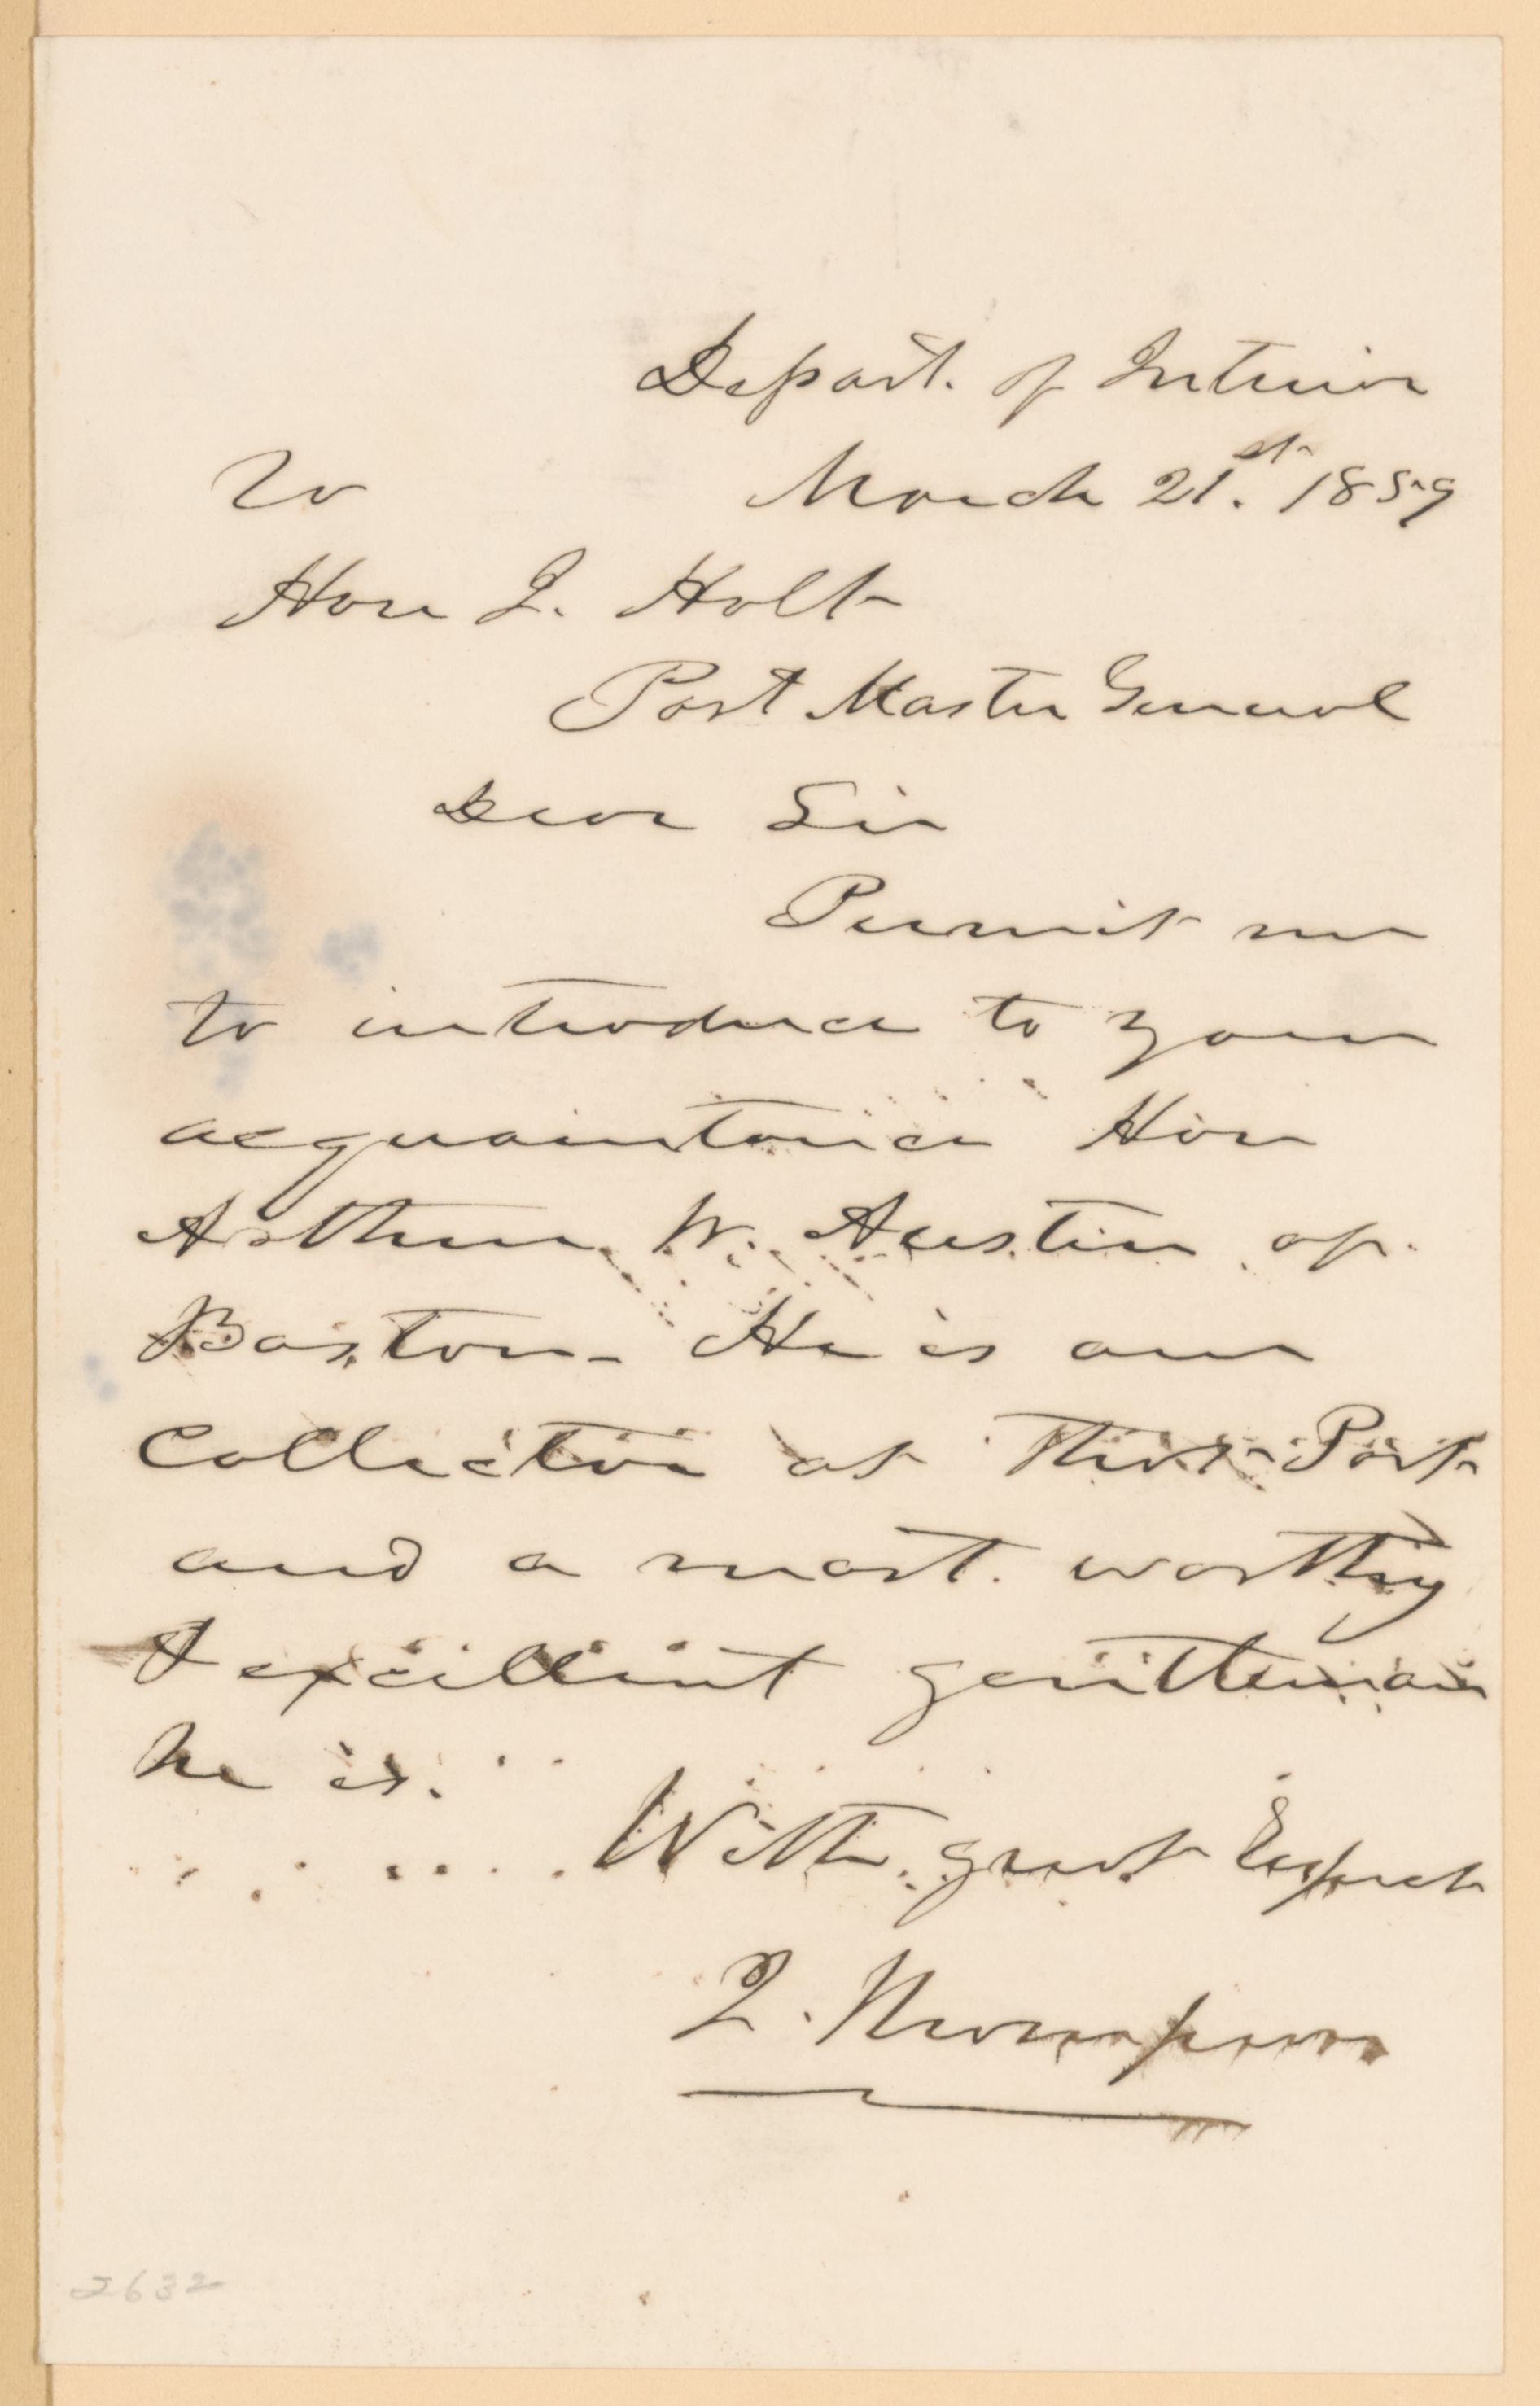 Depart. of Interior
To March 21.st 1859
Hon J. Holt
Post Master General
Dear Sir
Permit me
to introduce to your
acquaintance Hon
Arthur W. Austin of
Boston – He is our
Collector at that Port
and a most worthy
& excellent gentleman
he is.
With great Respect
J. Thompson
2632